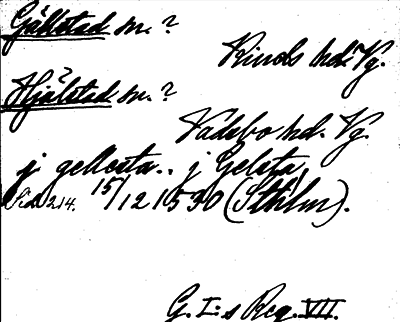 Gällstad sn. ?
Kinds hd. Vg.
Hjälstad sn. ?
Vadsbo hd. Vg.
j gellesta.. j Gelsta,
Sid 214. 15/12 1530 (Sthlm).
G. I:s Reg. VII.